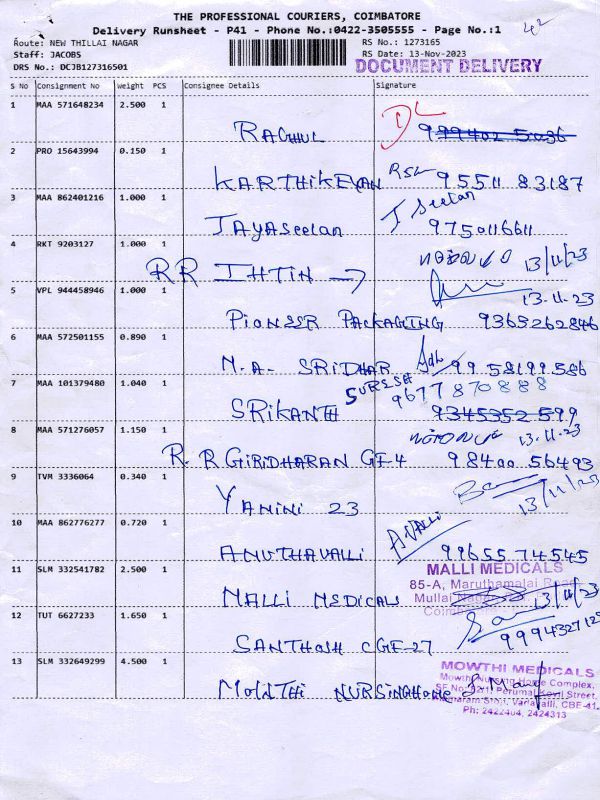 THE PROFESSIONAL COURIERS, COIMBATORE
Delivery Runsheet - P41 - Phone No.:0422-3505555 - Page No.:1
42
Route: NEW THILLAI NAGAR
RS No.: 1273165
Staff: JACOBS
RS Date: 13-Nov-2023
DRS No.: DCJB127316501
DOCUMENT DELIVERY
S No Consignment No Weight PCS Consignee Details Signature
1 MAA 571648234 2.500 1
RAGHUL
DL
2 PRO 15643994 0.150 1
KARTHIKEYAN 95511 83187
3 MAA 862401216 1.000 1
J Seelan
JAYASeelan 9750116611
4 RKT 9203127 1.000 1
13/11/23
RR IHTIN →
5 VPL 944458946 1.000 1
13.11.23
PIONEER PACKAGING 9365262846
6 MAA 572501155 0.890 1
M.A. SRIDHAR 99 58199586
7 MAA 101379480 1.040 1
SURESH 9677870888
SRIKANTH 9345352599
8 MAA 571276057 1.150 1
13.11.23
R.R GIRIDHARAN GF-4 98400 56493
9 TVM 3336064 0.340 1
YAMINI 23
13/11/23
10 MAA 862776277 0.720 1
ANUTHAVALLI 99655 74545
11 SLM 332541782 2.500 1
MALLI MEDICALS
85-A, Maruthamalai Road
MALLI MEDICALS
13/11/23
12 TUT 6627233 1.650 1
SANTHOSH CGF-27
13 SLM 332649299 4.500 1
MOWTHI MEDICALS
Mowthi Nursing Home Complex,
MOWTHI NURSINGHOME
Vadavalli, CBE-41.
Ph: 2422404, 2424313